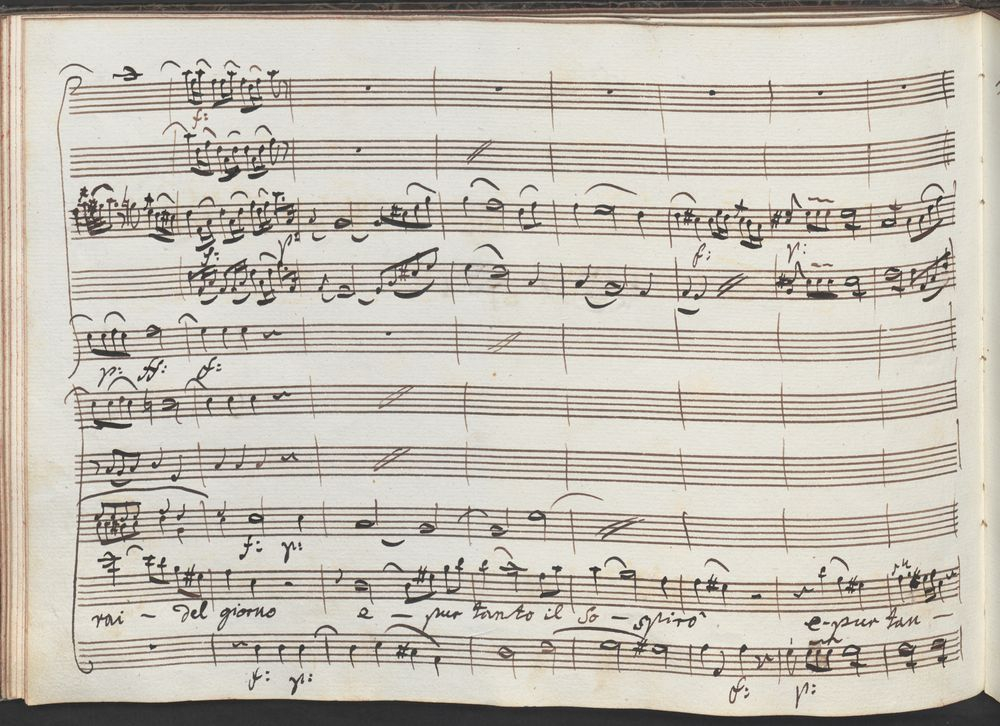 f:
f: p:
f: p:
p: ff: f:
f: p:
rai - del giorno e - pur tanto il So - spirò e-pur tan -
f: p: f: p: